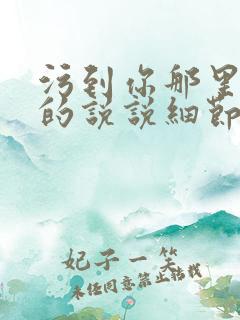 污到你那里
的说说细节
妃子一笑
未经同意禁止转载